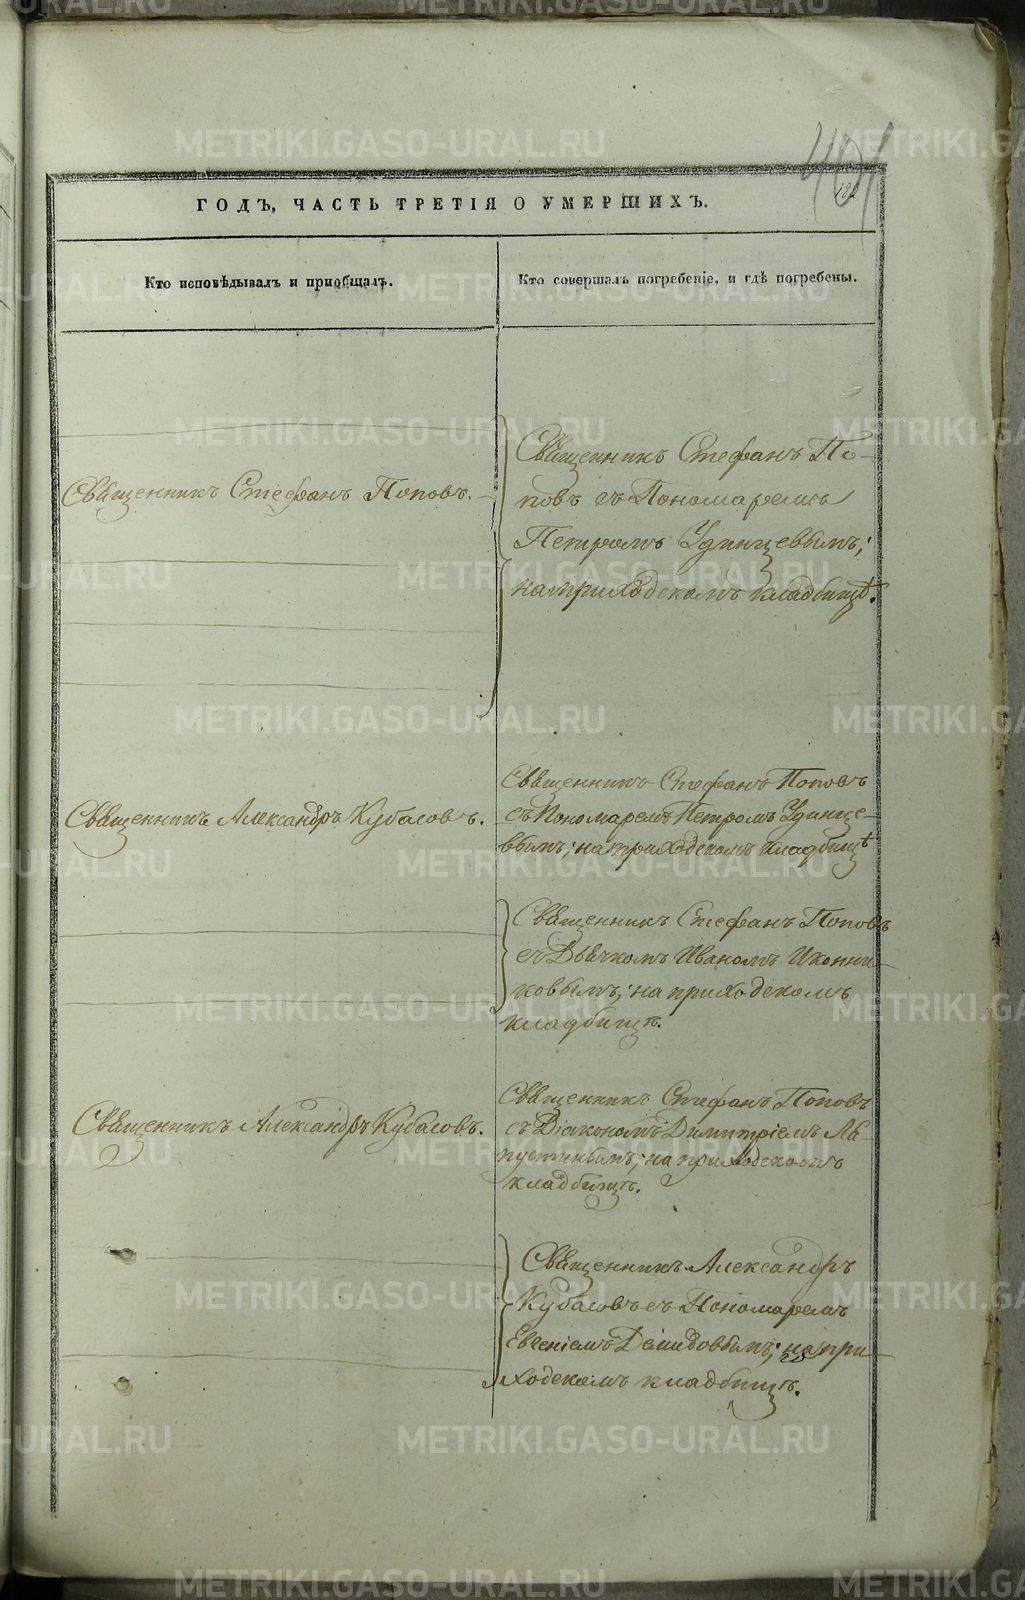 ГОДЪ, ЧАСТЬ ТРЕТІЯ О УМЕРШИХЪ.
Кто исповѣдывалъ и приобщалъ.
Кто совершалъ погребеніе, и гдѣ погребены.
Священникъ Стефанъ Поповъ.
Священникъ Стефанъ По-
повъ съ Пономаремъ
Петромъ Удинцевымъ;
на приходскомъ кладбищѣ.
Священникъ Александръ Кубасовъ.
Священникъ Стефанъ Поповъ
съ Пономаремъ Петромъ Удинце-
вымъ; на приходскомъ кладбищѣ
Священникъ Стефанъ Поповъ
съ Дьячкомъ Иваномъ Иконни-
ковымъ; на приходскомъ
кладбищѣ.
Священникъ Александръ Кубасовъ.
Священникъ Стефанъ Поповъ
съ Діакономъ Димитріемъ Ла-
пустинымъ; на приходскомъ
кладбищѣ.
Священникъ Александръ
Кубасовъ съ Пономаремъ
Евгеніемъ Демидовымъ; на при-
ходскомъ кладбищѣ.
METRIKI.GASO-URAL.RU